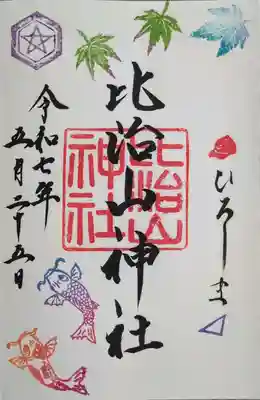 ひろしま
比治山神社
比治山
神社
令和七年
五月二十五日